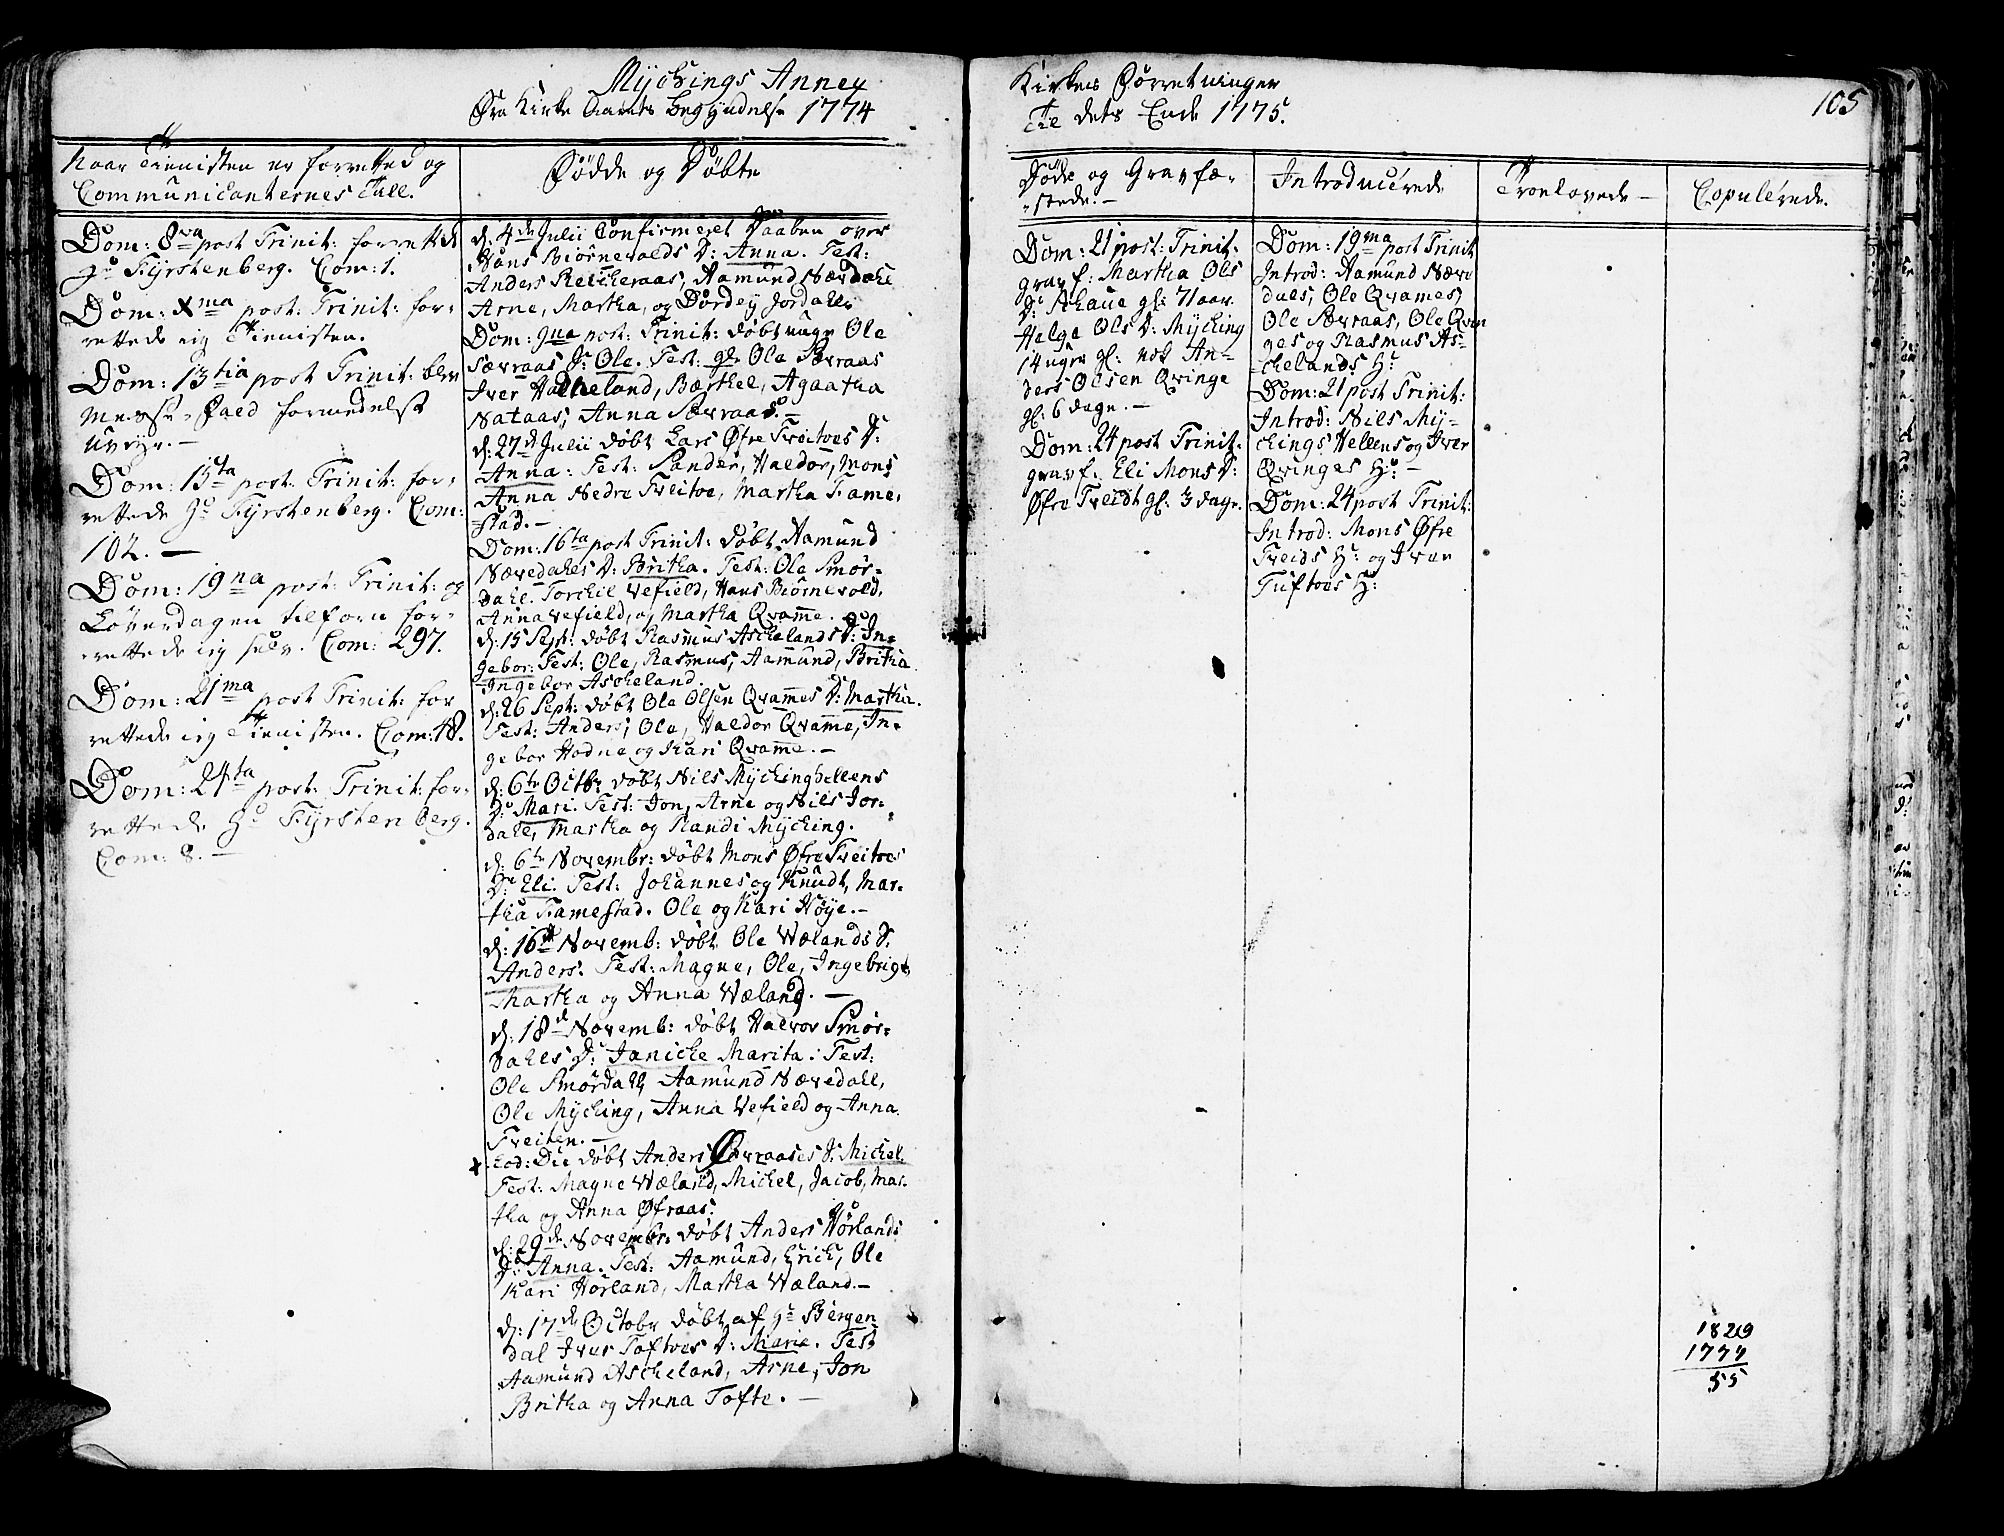 Mychings Annex
Fra Kirke Aarets begyndelse 1774
Naar Tienisten er forretted og
Communicanternes Tall.
Dom: 8va post Trinit: forrettede
Hr Fyrstenberg. Com: 1.
Dom: Xma post: Trinit: for-
rettede ieg Tienisten.
Dom: 13tia post Trinit: blev
Messe-Fald formedelst
Uveyr. —
Dom: 15ta post. Trinit: for-
rettede Hr Fyrstenberg. Com:
102. —
Dom: 19na post: Trinit: og
Løverdagen tilforn for-
rettede ieg selv. Com: 297.
Dom: 21ma post Trinit: for
rettede ieg Tienisten. Com: 48.
Dom: 24ta post. Trinit: for-
rettede Hr Fyrstenberg.
Com: 8. —
Fødde og Døbte
d: 4de Julii Confirmeret Daaben over
Hans Biørnevolds D: Anna. Test:
Anders Reicheraas, Aamund Nævdahl
Arne, Martha, og Dordey Jordahl.
Dom: 9na post: Trinit: døbt unge Ole
Sævraas S: Ole. Test: gl. Ole Sævraas
Iver Hadleland, Barthel, Agaatha
Nataas, Anna Sævraas. —
d: 27de Julii døbt Lars Øfre Tveitoes D:
Anna: Test: Sander, Haldor, Mons
Anna Nedre Tveitoe, Martha Fame-
stad. —
Dom: 16ta post Trinit: døbt Aamund
Nævedahls D: Britha. Test: Ole Smør-
dahl. Torchil Vefield, Hans Biørnevold,
Anna Vefield, og Martha Qvamme.
d: 15 Sept: døbt Rasmus Aschelands D: In-
gebor: Test: Ole, Rasmus, Aamund, Britha
Ingebor Ascheland.
d: 26 Sept: døbt Ole Olsen Qvammes D: Martha.
Test: Anders, Ole, Haldor Qvamme, In-
gebor Hodne og Kari Qvamme. —
d: 6te Octbr døbt Nils Mychinghellens
D: Mari. Test: Jon, Arne og Nils Jor-
dahl, Martha og Randi Myching.
d: 6te Novembr: døbt Mons Øfre Tveitoes
D: Eli. Test: Johannes og Knudt, Mar-
tha Famestad. Ole og Kari Høye. —
d: 16de Novemb: døbt Ole Wælands S.
Anders. Test: Magne, Ole, Ingebrigt,
Martha og Anna Wæland. —
d: 18de Novemb: døbt Halvor Smør-
dahls D: Janiche Marita. Test:
Ole Smørdahl, Aamund Nævedahl,
Ole Myching, Anna Vefield og Anna
Tveiten. —
Eod: Die døbt Anders Øfvraases S. Michel.
Test: Magne Wæland, Michel, Jacob, Mar-
tha og Anna Øfraas.
d: 29de Novembr: døbt Anders Hørlands
D: Anna. Test: Aamund, Erich, Ole
Kari Hørland, Martha Wæland. —
d: 17de Octobr døbt af Hr Bergen
dal Iver Toftoes D: Marie. Test
Aamund Ascheland, Arne, Jon
Britha og Anna Tofte. —
Kirkes Forretninger
Til dets Ende 1775.
105
Døde og Gravfæ-
stede. —
Dom: 21 post: Trinit:
gravf: Martha Ols
D: Schaue gl: 71 aar.
Helge Ols D: Myching
14 uger gl: nok An-
ders Olsen Qvinge
gl: 6 dage. —
Dom: 24 post Trinit:
gravf. Eli Mons D:
Øfre Tveidt gl: 3 dage.
Introducerede
Dom: 19ma post Trinit
Introd: Aamund Næve
dales, Ole Qvames,
Ole Sævraas, Ole Qvin
ges og Rasmus As-
chelands H:
Dom: 21 post Trinit:
Introd: Nils My-
chings Hellens og Iver
Qvinges H: —
Dom: 24 post Trinit:
Introd: Mons Øfre
Tveids H: og Iver
Tuftoes H:
Troelovede —
Copulerede.
1829
1774
55